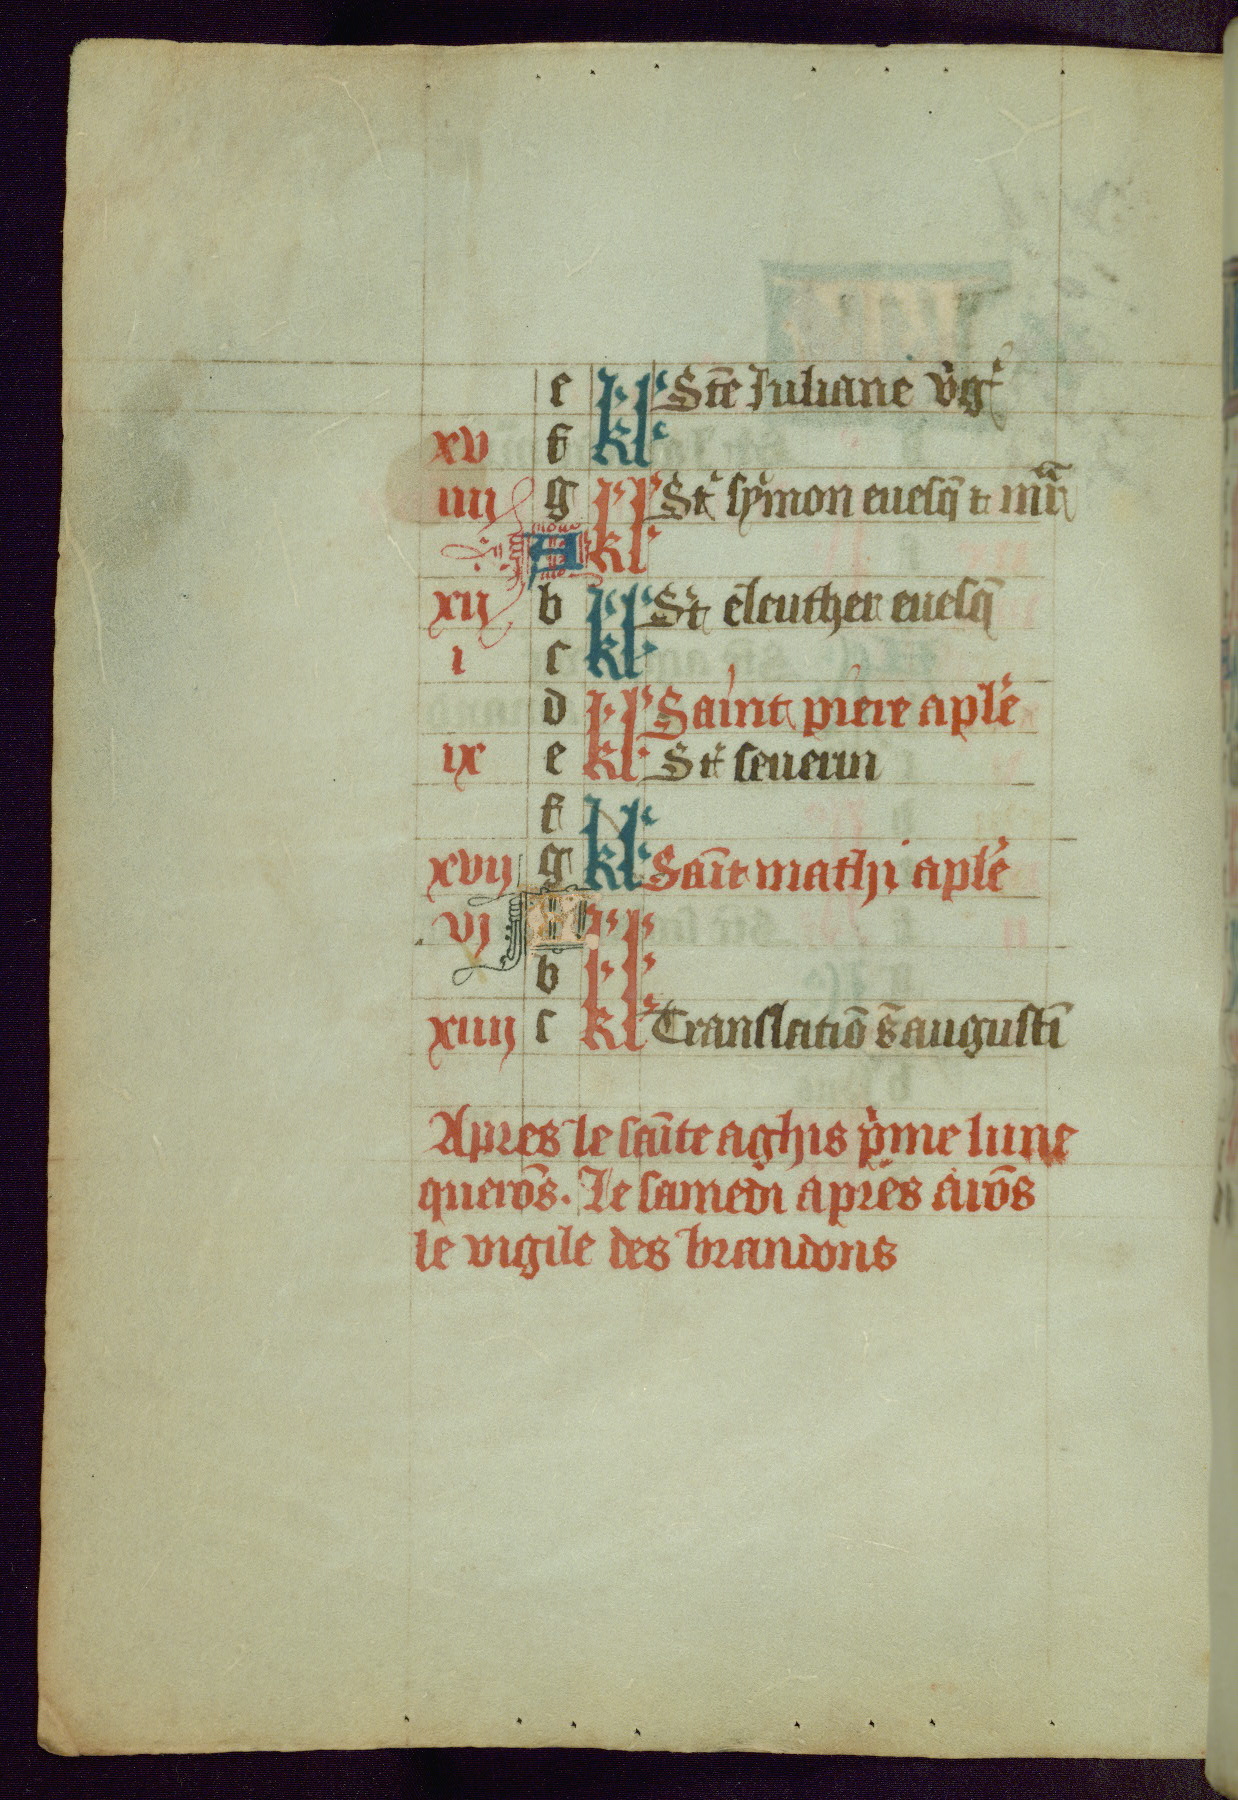 e kl Ste Juliane v̾g̾
xv f kl
iiij g kl St symon euesq̄ & mr̄
A kl
xij b kl St eleuther euesq̄
i c kl
d kl Saint piere aplē
ix e kl St seuerin
f kl
xvij g kl Sāit mathi aplē
vj A kl
b kl
xiiij c kl Translatiō s̄ augustī
Apres le sāīte aghis p̾me lune
querōs. Le samedi apres arōs
le vigile des brandons